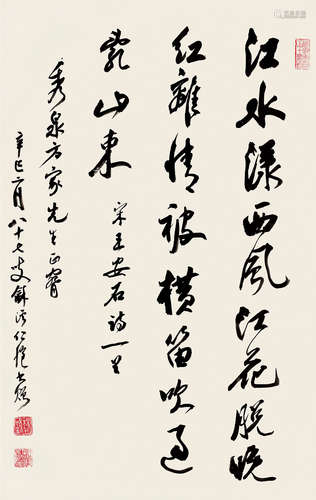 江水漾西風江花脱晚
红離情被横笛吹过
亂山東
宋王安石诗一首
秀泉方家先生正
辛巳月八十七叟龢溪仁愷书